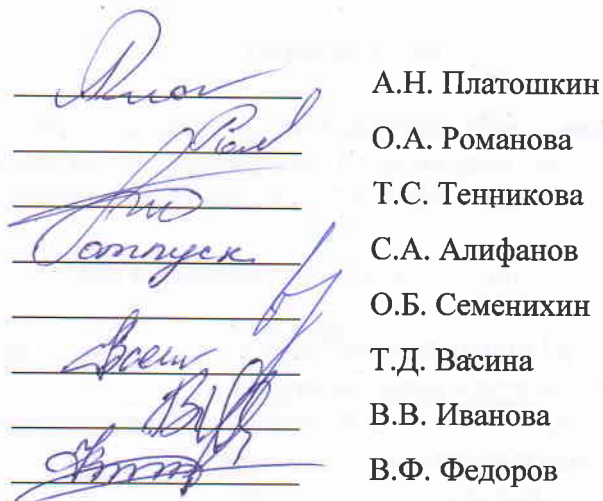 А.Н. Платошкин
О.А. Романова
Т.С. Тенникова
отпуск С.А. Алифанов
О.Б. Семенихин
Т.Д. Васина
В.В. Иванова
В.Ф. Федоров